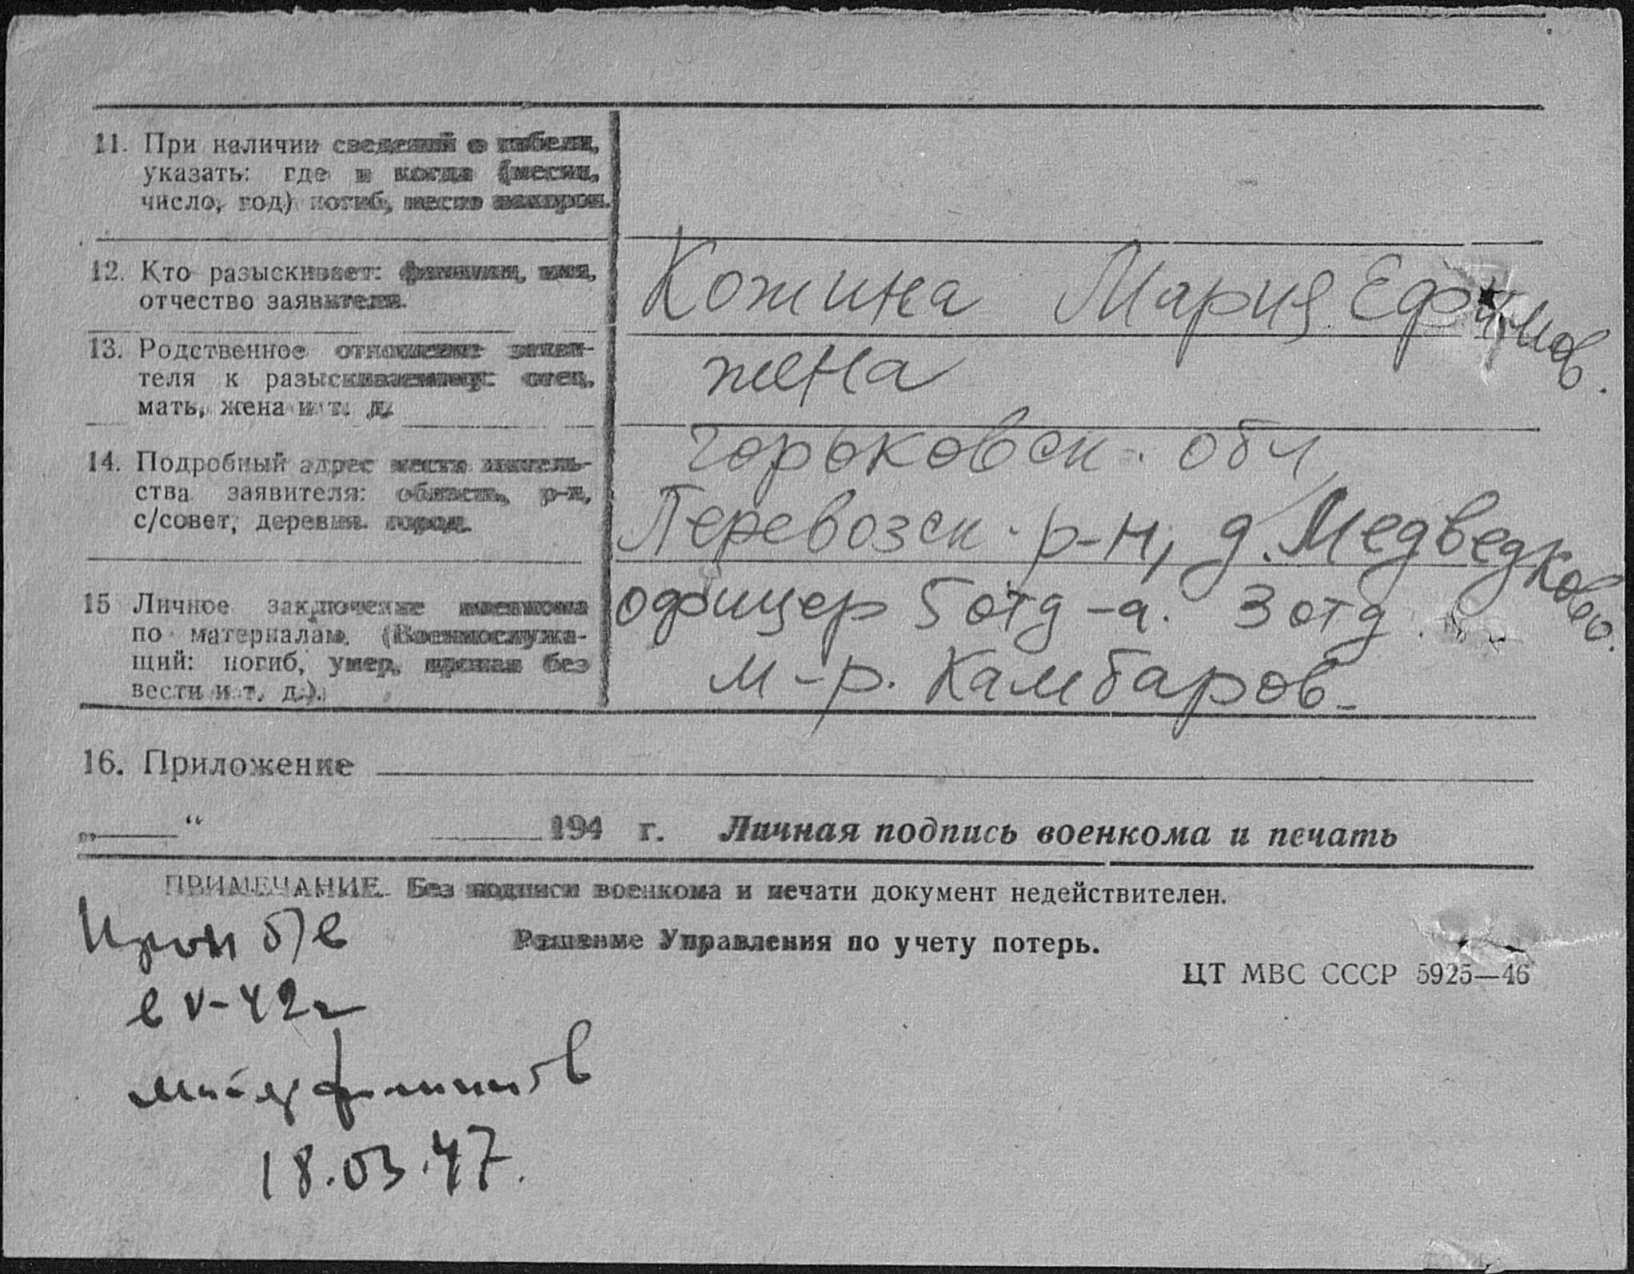 11. При наличии сведений о гибели,
указать: где и когда (месяц,
число, год) погиб, место похорон.
12. Кто разыскивает: фамилия, имя,
отчество заявителя.
Кожина Мария Ефимов.
13. Родственное отношение заяви-
теля к разыскиваемому: отец,
мать, жена и т. д.
жена
14. Подробный адрес места житель-
ства заявителя: область, р-н,
с/совет, деревня. город.
Горьковск. обл,
Перевозск. р-н, д. Медведково.
15 Личное заключение военкома
по материалам. (Военнослужа-
щий: погиб, умер, пропал без
вести и т. д.).
офицер 5 отд-а. 3 отд.
м-р. Камбаров
16. Приложение
„ “ 194 г. Личная подпись военкома и печать
ПРИМЕЧАНИЕ. Без подписи военкома и печати документ недействителен.
Решение Управления по учету потерь.
ЦТ МВС СССР 5925—46
б/в
в V-42г
18.03.47.